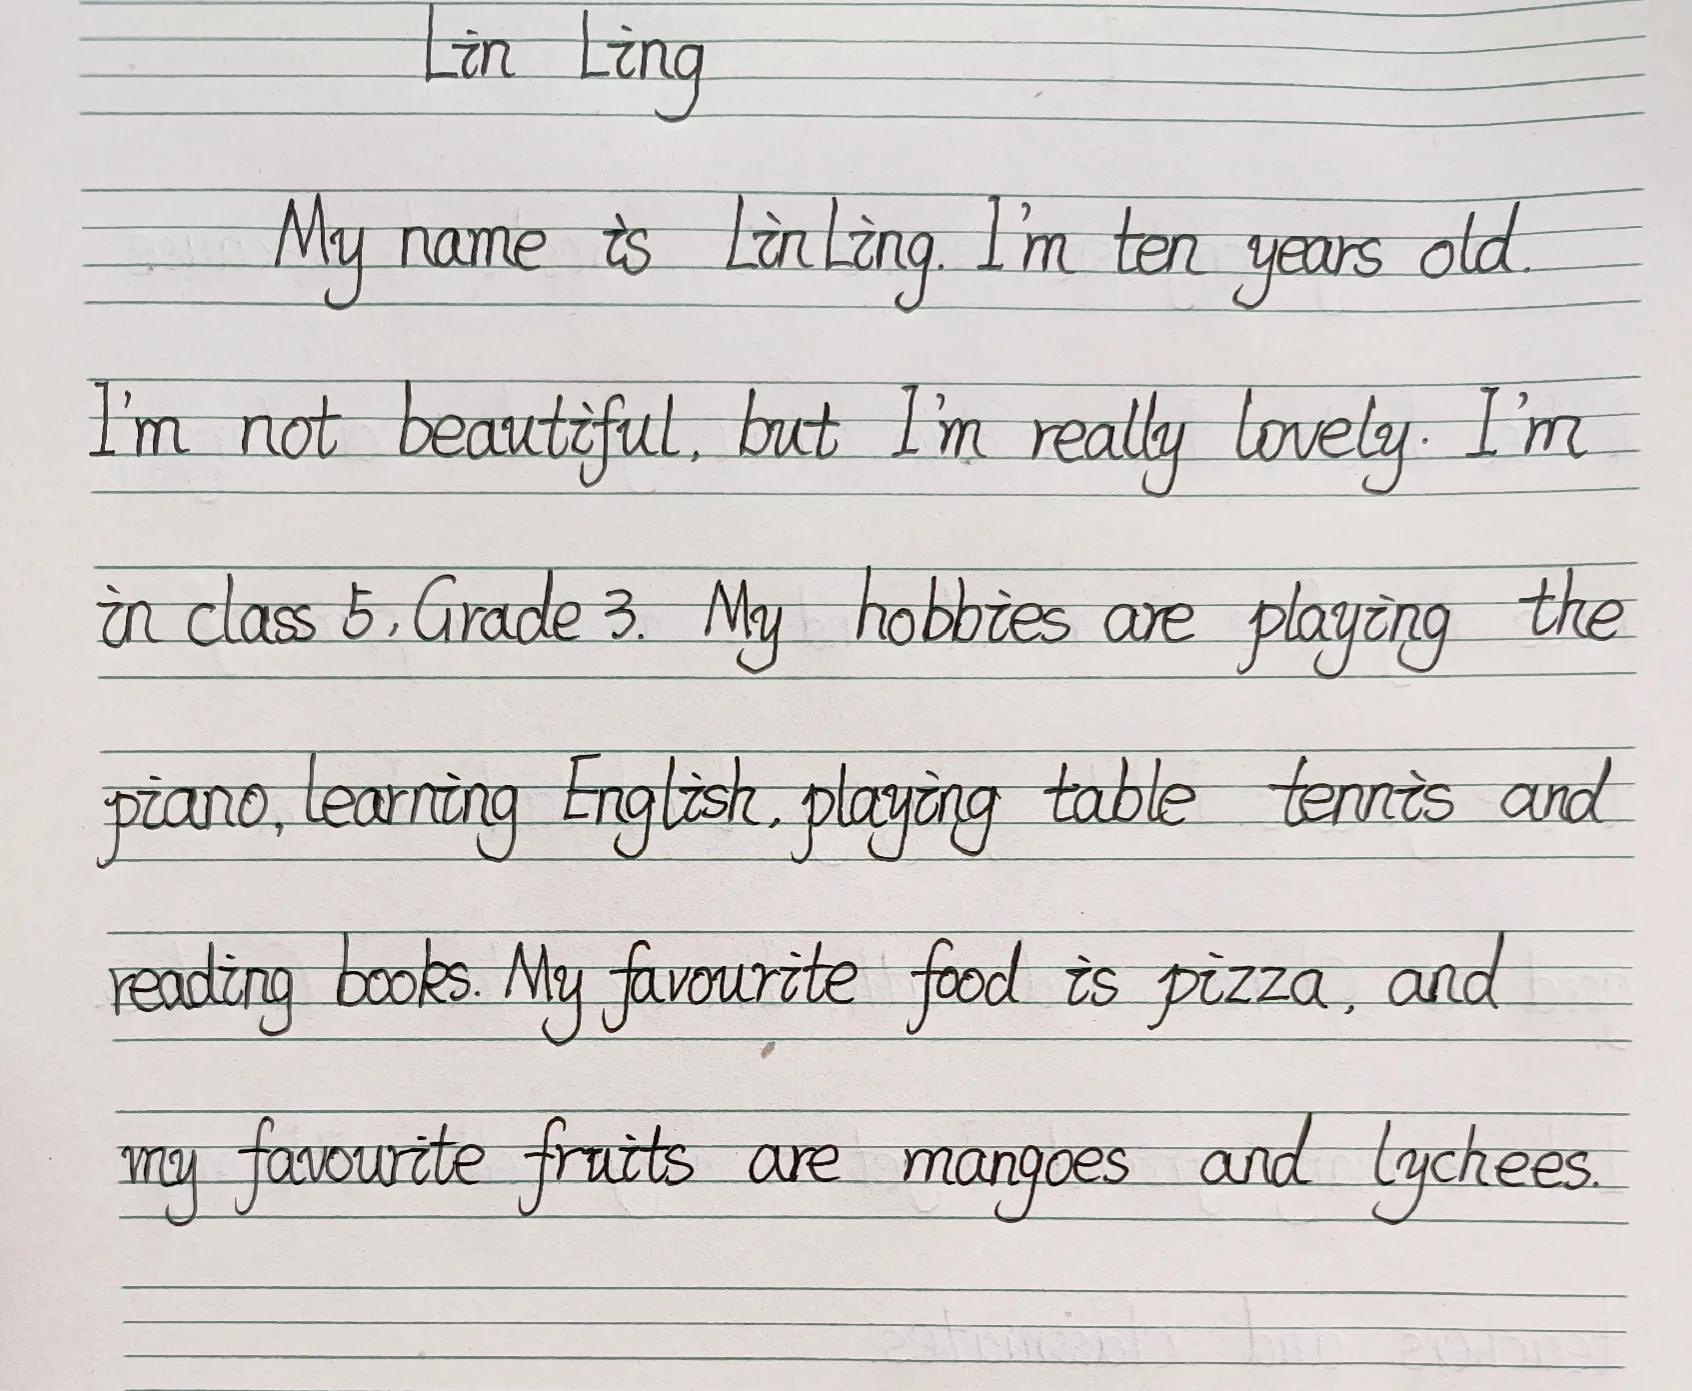 Lin Ling
My name is Lin Ling. I'm ten years old.
I'm not beautiful, but I'm really lovely. I'm
in class 5, Grade 3. My hobbies are playing the
piano, learning English, playing table tennis and
reading books. My favourite food is pizza, and
my favourite fruits are mangoes and lychees.